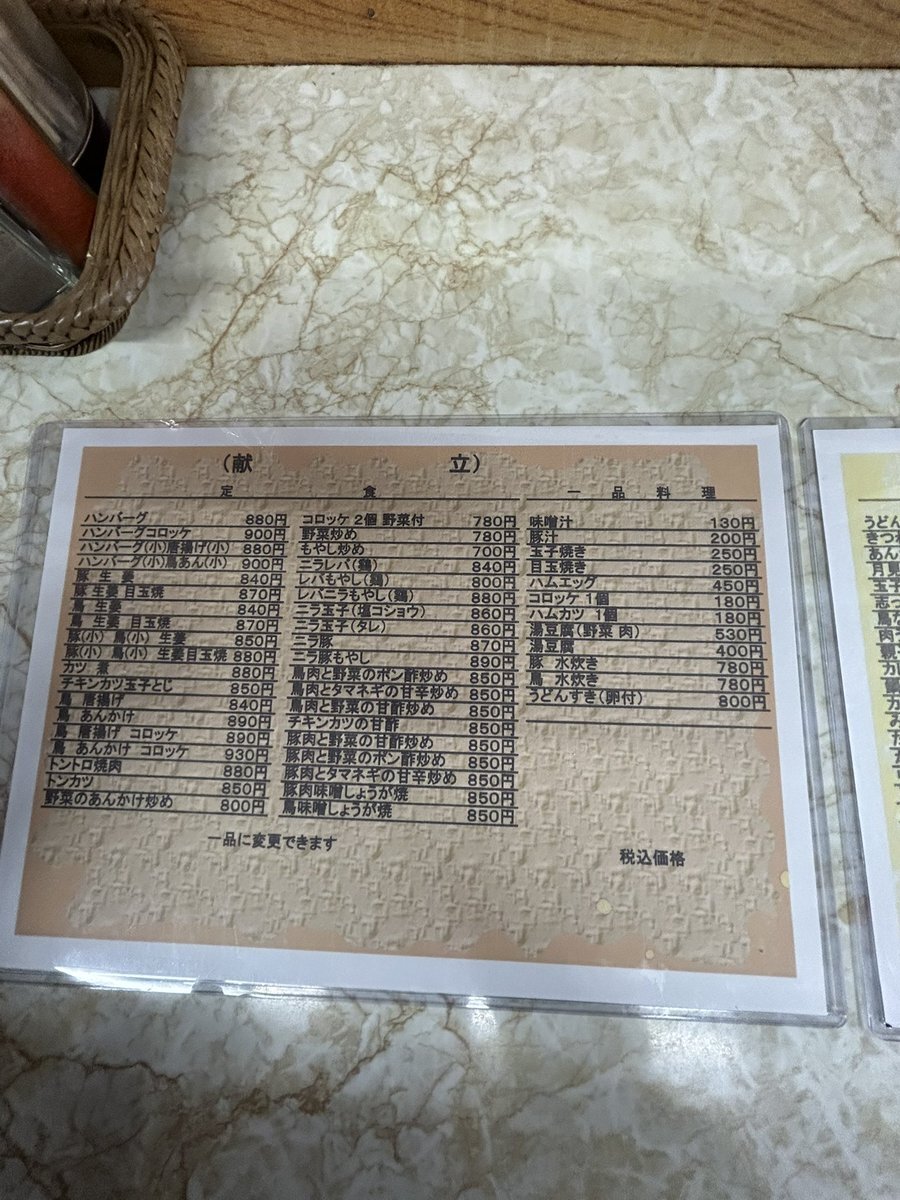 (献 立)
定 食
ハンバーグ 880円
ハンバーグコロッケ 900円
ハンバーグ(小)唐揚げ(小) 880円
ハンバーグ(小)鳥あん(小) 900円
豚 生 姜 840円
豚 生姜 目玉焼 870円
鳥 生姜 840円
鳥 生姜 目玉焼 870円
豚(小) 鳥(小) 生姜 850円
豚(小) 鳥(小) 生姜目玉焼 880円
カツ 煮 880円
チキンカツ玉子とじ 850円
鳥 唐揚げ 840円
鳥 あんかけ 890円
鳥 唐揚げ コロッケ 890円
鳥 あんかけ コロッケ 930円
トントロ焼肉 880円
トンカツ 850円
野菜のあんかけ炒め 800円
コロッケ 2個 野菜付 780円
野菜炒め 780円
もやし炒め 700円
ニラレバ(鶏) 840円
レバもやし(鶏) 800円
レバニラもやし(鶏) 880円
ニラ玉子(塩コショウ) 860円
ニラ玉子(タレ) 860円
ニラ豚 870円
ニラ豚もやし 890円
鳥肉と野菜のポン酢炒め 850円
鳥肉とタマネギの甘辛炒め 850円
鳥肉と野菜の甘酢炒め 850円
チキンカツの甘酢 850円
豚肉と野菜の甘酢炒め 850円
豚肉と野菜のポン酢炒め 850円
豚肉とタマネギの甘辛炒め 850円
豚肉味噌しょうが焼 850円
鳥味噌しょうが焼 850円
一品に変更できます
一 品 料 理
味噌汁 130円
豚汁 200円
玉子焼き 250円
目玉焼き 250円
ハムエッグ 450円
コロッケ 1個 180円
ハムカツ 1個 180円
湯豆腐(野菜 肉) 530円
湯豆腐 400円
豚 水炊き 780円
鳥 水炊き 780円
うどんすき(卵付) 800円
税込価格
うどん